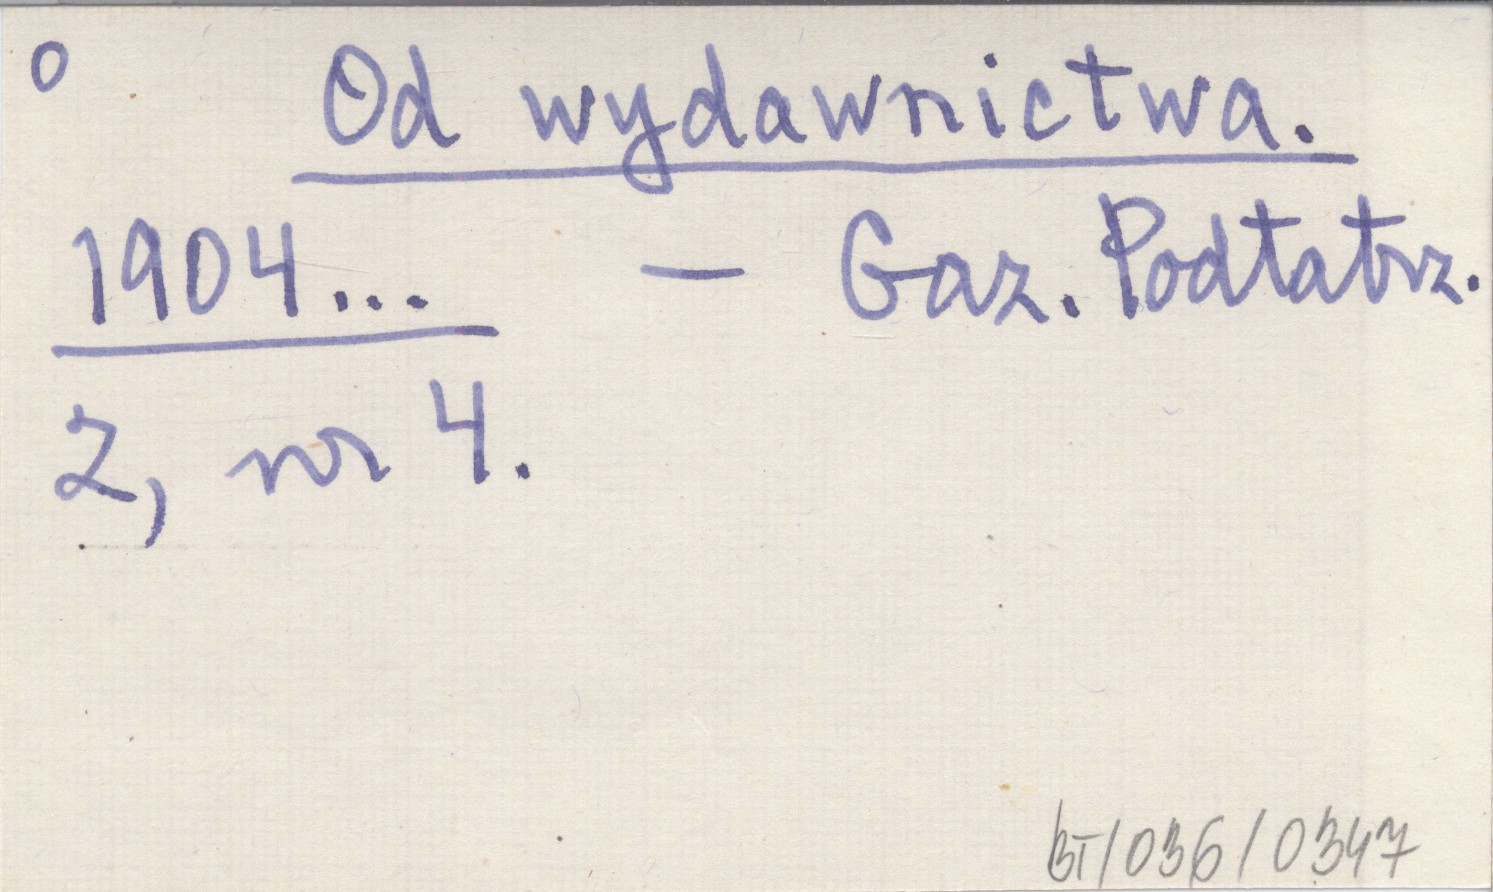 o Od wydawnictwa.
1904... — Gaz. Podtatrz.
2, nr 4.
BT/036/0347